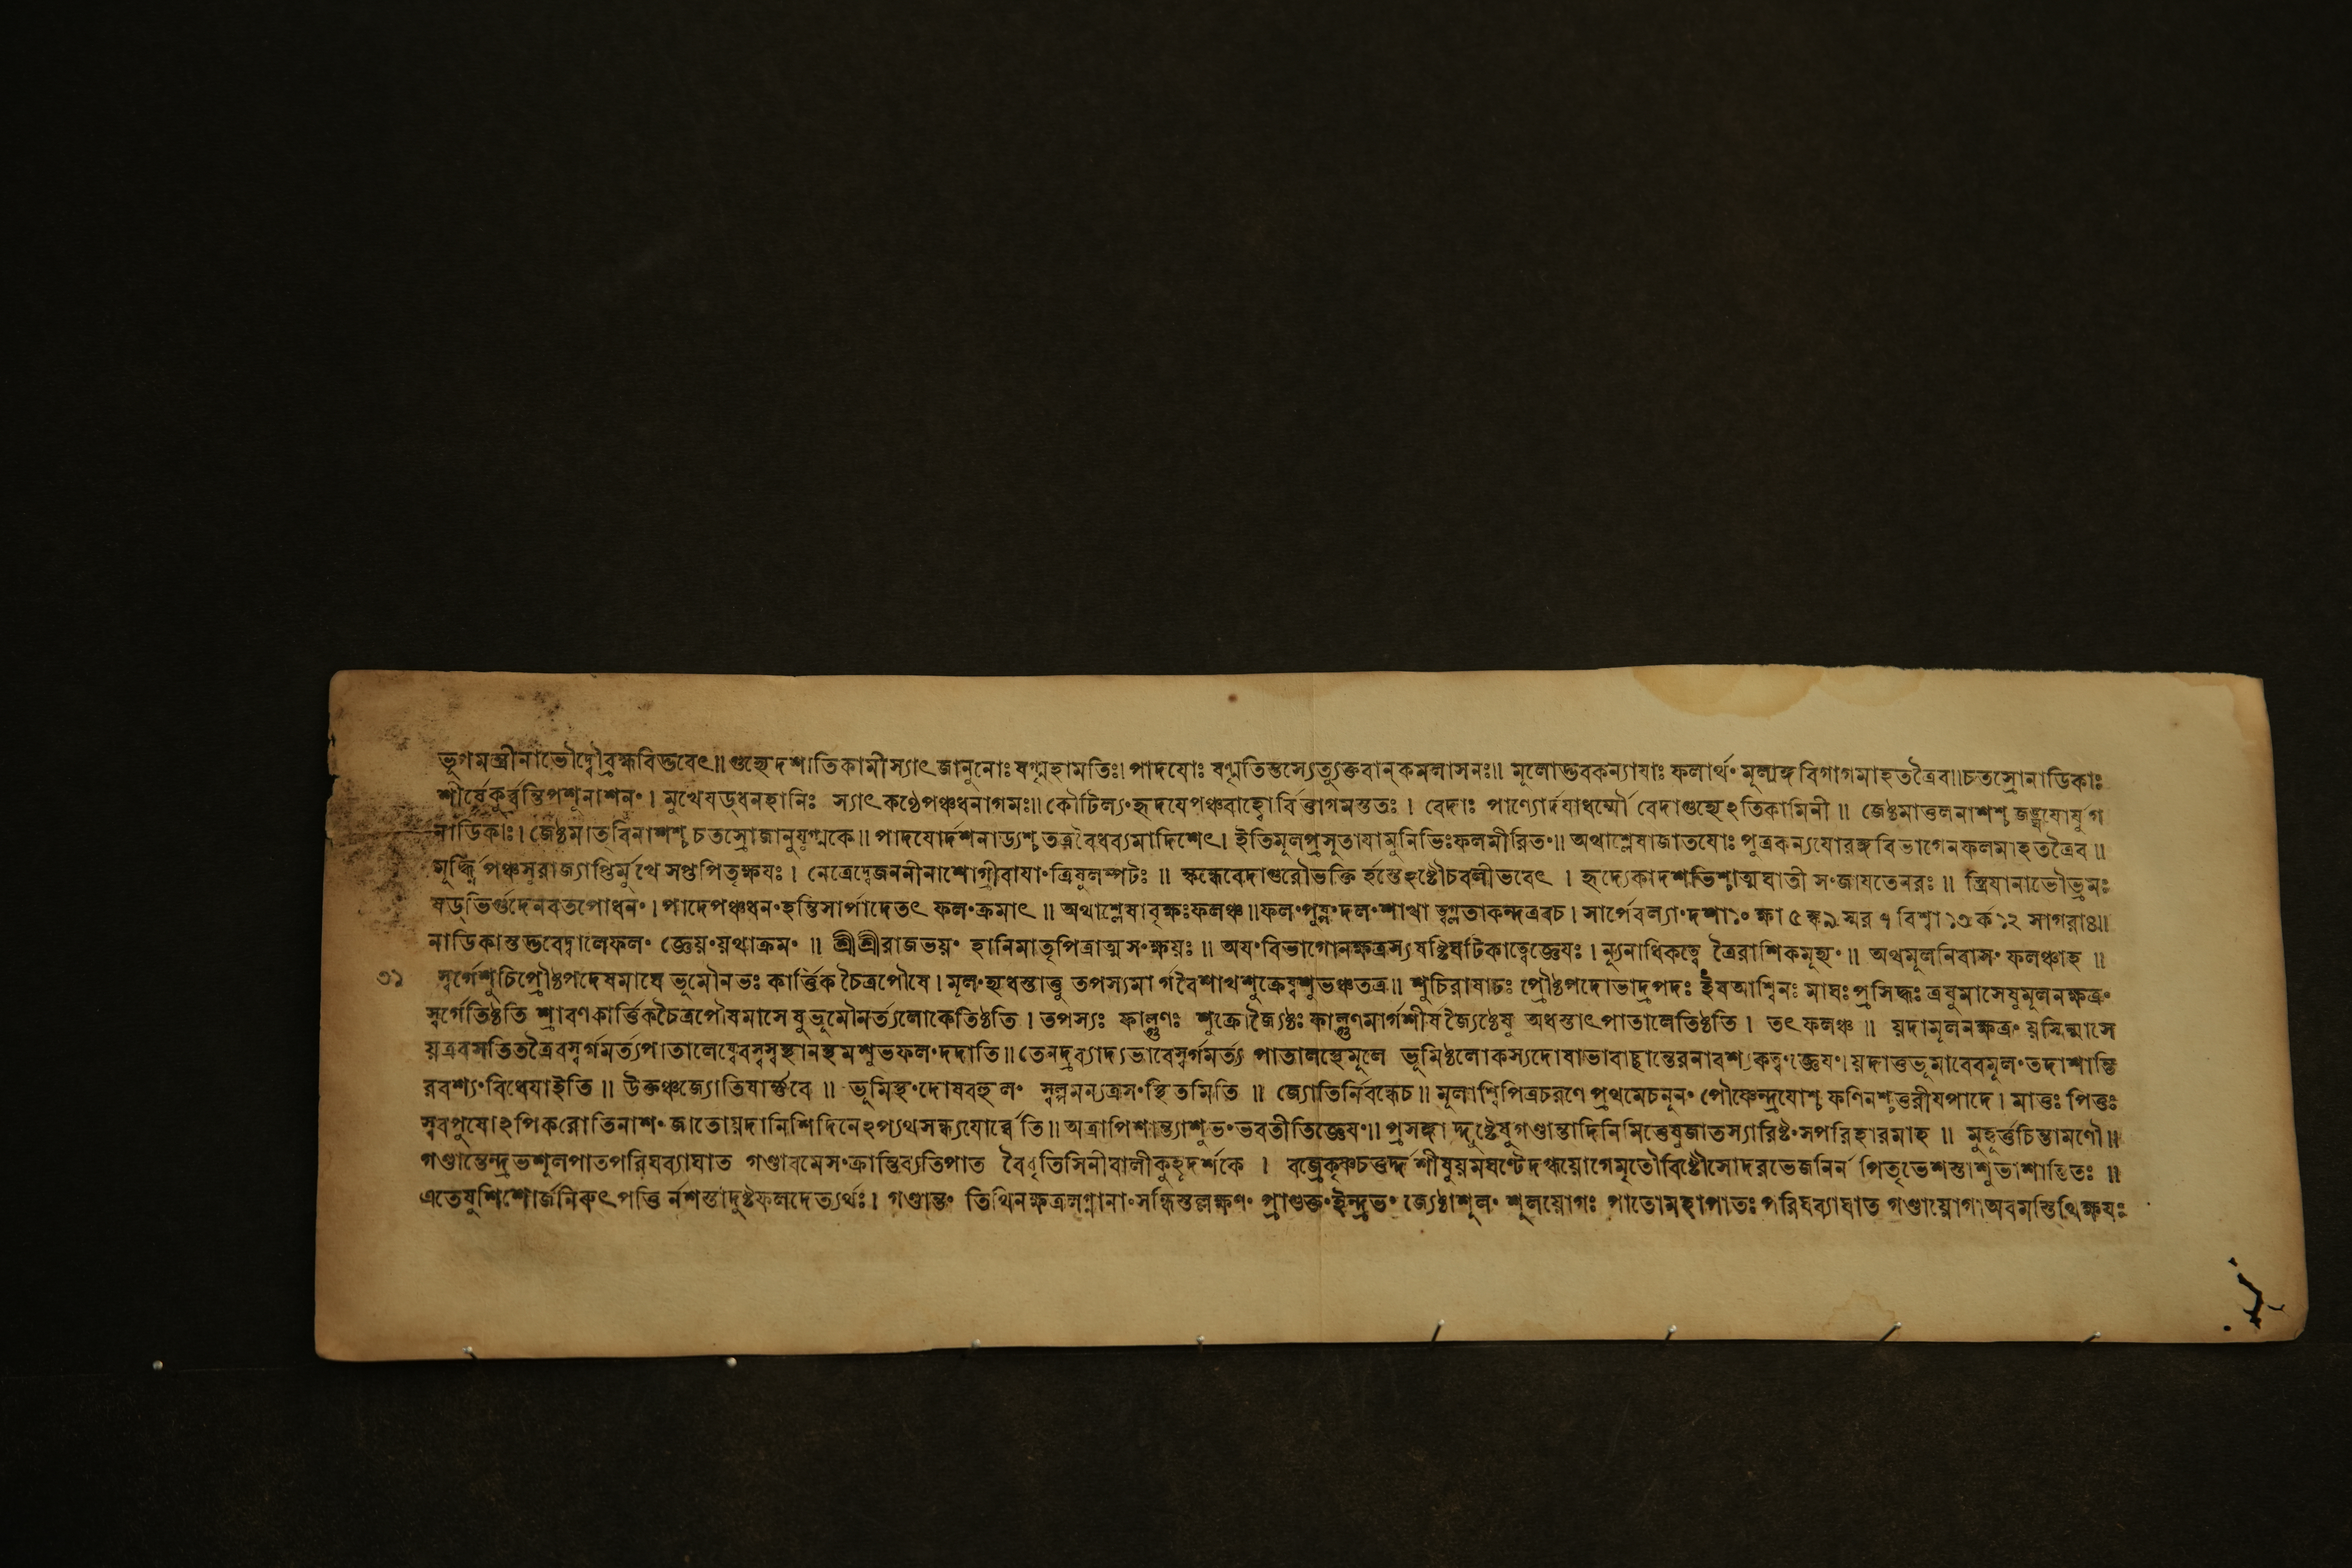 ভূগমন্ত্রীনাভৌদ্বৌব্রহ্মবিত্তবেৎ॥গুহ্যেদশাতিকামীস্যাৎজানুনোঃষণ্মহামতিঃ।পাদযোঃ ষণ্মতিস্তস্যেত্যুক্তবান্কমলাসনঃ॥ মূলোদ্ভবকন্যাযাঃ ফলার্থং মূলাঙ্গবিগাগমাহতত্রৈব॥চতস্রোনাডিকাঃ
শীর্ষেকুর্ব্বন্তিপশুনাশনং। মুখেষড্ধনহানিঃ স্যাৎকণ্ঠেপঞ্চধনাগমঃ॥ কৌটিল্যংহৃদযেপঞ্চবাহ্বোর্বিত্তাগমস্ততঃ। বেদাঃ পাণ্যোর্দযাধর্ম্মৌ বেদাগুহ্যেঽতিকামিনী॥ জেষ্ঠমাতুলনাশশ্চজঙ্ঘযোর্যুগ
নাডিকাঃ। জেষ্ঠমাতৃবিনাশশ্চচতস্রোজানুযুগ্মকে॥ পাদযোর্দশনাড্যশ্চতত্রবৈধব্যমাদিশেৎ। ইতিমূলপ্রসুতাযামুনিভিঃফলমীরিতং॥ অথাশ্লেষাজাতযোঃ পুত্রকন্যযোরঙ্গবিভাগেনফলমাহতত্রৈব॥
মূর্দ্ধ্নিপঞ্চসুরাজ্যাপ্তির্মুখে সপ্তপিতৃক্ষযঃ। নেত্রেদ্বেজননীনাশোগ্রীবাযাংত্রিষুলম্পটঃ॥ স্কন্ধেবেদাগুরৌভক্তির্হস্তেহষ্টৌচবলীভবেৎ। হৃদ্যেকাদশভিশ্চাত্মঘাতী সংজাযতেনরঃ॥ স্ত্রিযানাভৌভ্রমঃ
ষড্ভির্গুদেনবতপোধনং। পাদেপঞ্চধনংহন্তিসার্পাদেতৎ ফলংক্রমাৎ॥ অথাশ্লেষাবৃক্ষঃফলঞ্চ॥ফলংপুষ্পংদলংশাখা ত্বগ্লতাকন্দএবচ। সার্পেবল্যাংদশা১০ক্ষা৫ঙ্ক৯স্মর৭বিশ্বা১৩র্ক১২সাগরাঃ৪॥
নাডিকাস্তদ্ভবেদ্বালেফলং জ্ঞেয়ংয়থাক্রমং॥ শ্রীশ্রীরাজভয়ং হানিমাতৃপিত্রাত্মসংক্ষয়ঃ॥ অযংবিভাগোনক্ষত্রস্যষষ্টিঘটিকাত্বেজ্ঞেযঃ। ন্যূনাধিকত্বে ত্রৈরাশিকমূহ্যং॥ অথমূলনিবাসং ফলঞ্চাহ॥
৩১ স্বর্গেশুচিপ্রৌষ্ঠপদেষমাঘে ভূমৌনভঃ কার্ত্তিকচৈত্রপৌষে। মূলংহ্যধস্তাত্তু তপস্যমার্গবৈশাখশুক্রেষ্বশুভঞ্চতত্র॥ শুচিরাষাঢঃ প্রৌষ্ঠপদোভাদ্রপদঃ ইষআশ্বিনঃ মাঘঃপ্রসিদ্ধঃ ত্রষুমাসেষুমূলনক্ষত্রং
স্বর্গেতিষ্ঠতি শ্রাবণকার্ত্তিকচৈত্রপৌষমাসেষুভূমৌমর্ত্যলোকেতিষ্ঠতি। তপস্যঃ ফাল্গুণঃ শুক্রোজৈ্যষ্ঠঃ ফাল্গুণমার্গশীর্ষজৈ্যষ্ঠেষু অধস্তাৎপাতালেতিষ্ঠতি। তৎফলঞ্চ॥ য়দামূলনক্ষত্রংয়স্মিন্মাসে
য়ত্রবসতিতত্রৈবস্বর্গমর্ত্যপাতালেষ্বেবস্বস্বস্থানস্থমশুভফলংদদাতি॥ তেনদ্রব্যাদ্যভাবেস্বর্গমর্ত্য পাতালস্থেমূলে ভূমিষ্ঠলোকস্যদোষাভাবাচ্ছান্তেরনাবশ্যকত্বংজ্ঞেযং।য়দাতুভূমাবেবমূলংতদাশান্তি
রবশ্যংবিধেযাইতি॥ উক্তঞ্চজ্যোতিষার্ণবে॥ ভূমিস্থংদোষবহুলং স্বল্পমন্যত্রসংস্থিতমিতি॥ জ্যোতির্নিবন্ধেচ॥ মূলাশ্বিপিত্রচরণে প্রথমেচনূনং পৌষ্ণেন্দ্রযোশ্চ ফণিনশ্চতুরীযপাদে। মাতুঃ পিতুঃ
স্ববপুষোঽপিকরোতিনাশংজাতোয়দানিশিদিনেঽপ্যথসন্ধ্যযোর্ব্বেতি॥ অত্রাপিশান্ত্যাশুভংভবতীতিজ্ঞেযং॥ প্রসঙ্গাদ্দুষ্টেষুগণ্ডান্তাদিনিমিত্তেষুজাতস্যারিষ্টংসপরিহারমাহ॥ মুহূর্ত্তচিন্তামণৌ॥
গণ্ডান্তেন্দ্রভশূলপাতপরিঘব্যাঘাত গণ্ডাবমেসংক্রান্তিব্যতিপাত বৈধৃতিসিনীবালীকুহূদর্শকে। বজ্রেকৃষ্ণচতুর্দ্দশীষুয়মঘণ্টেদগ্ধয়োগেমৃতৌবিষ্টৌসোদরভেজনির্ন পিতৃভেশস্তাশুভাশান্তিতঃ॥
এতেষুশিশোর্জনিরুৎপত্তির্নশস্তাদুষ্টফলদেত্যর্থঃ। গণ্ডান্তং তিথিনক্ষত্রলগ্নানাংসন্ধিস্তল্লক্ষণং প্রাগুক্তংইন্দ্রভং জ্যেষ্ঠাশূলং শূলয়োগঃ পাতোমহাপাতঃ পরিঘব্যাঘাত গণ্ডায়োগাঅবমস্তিথিক্ষযঃ